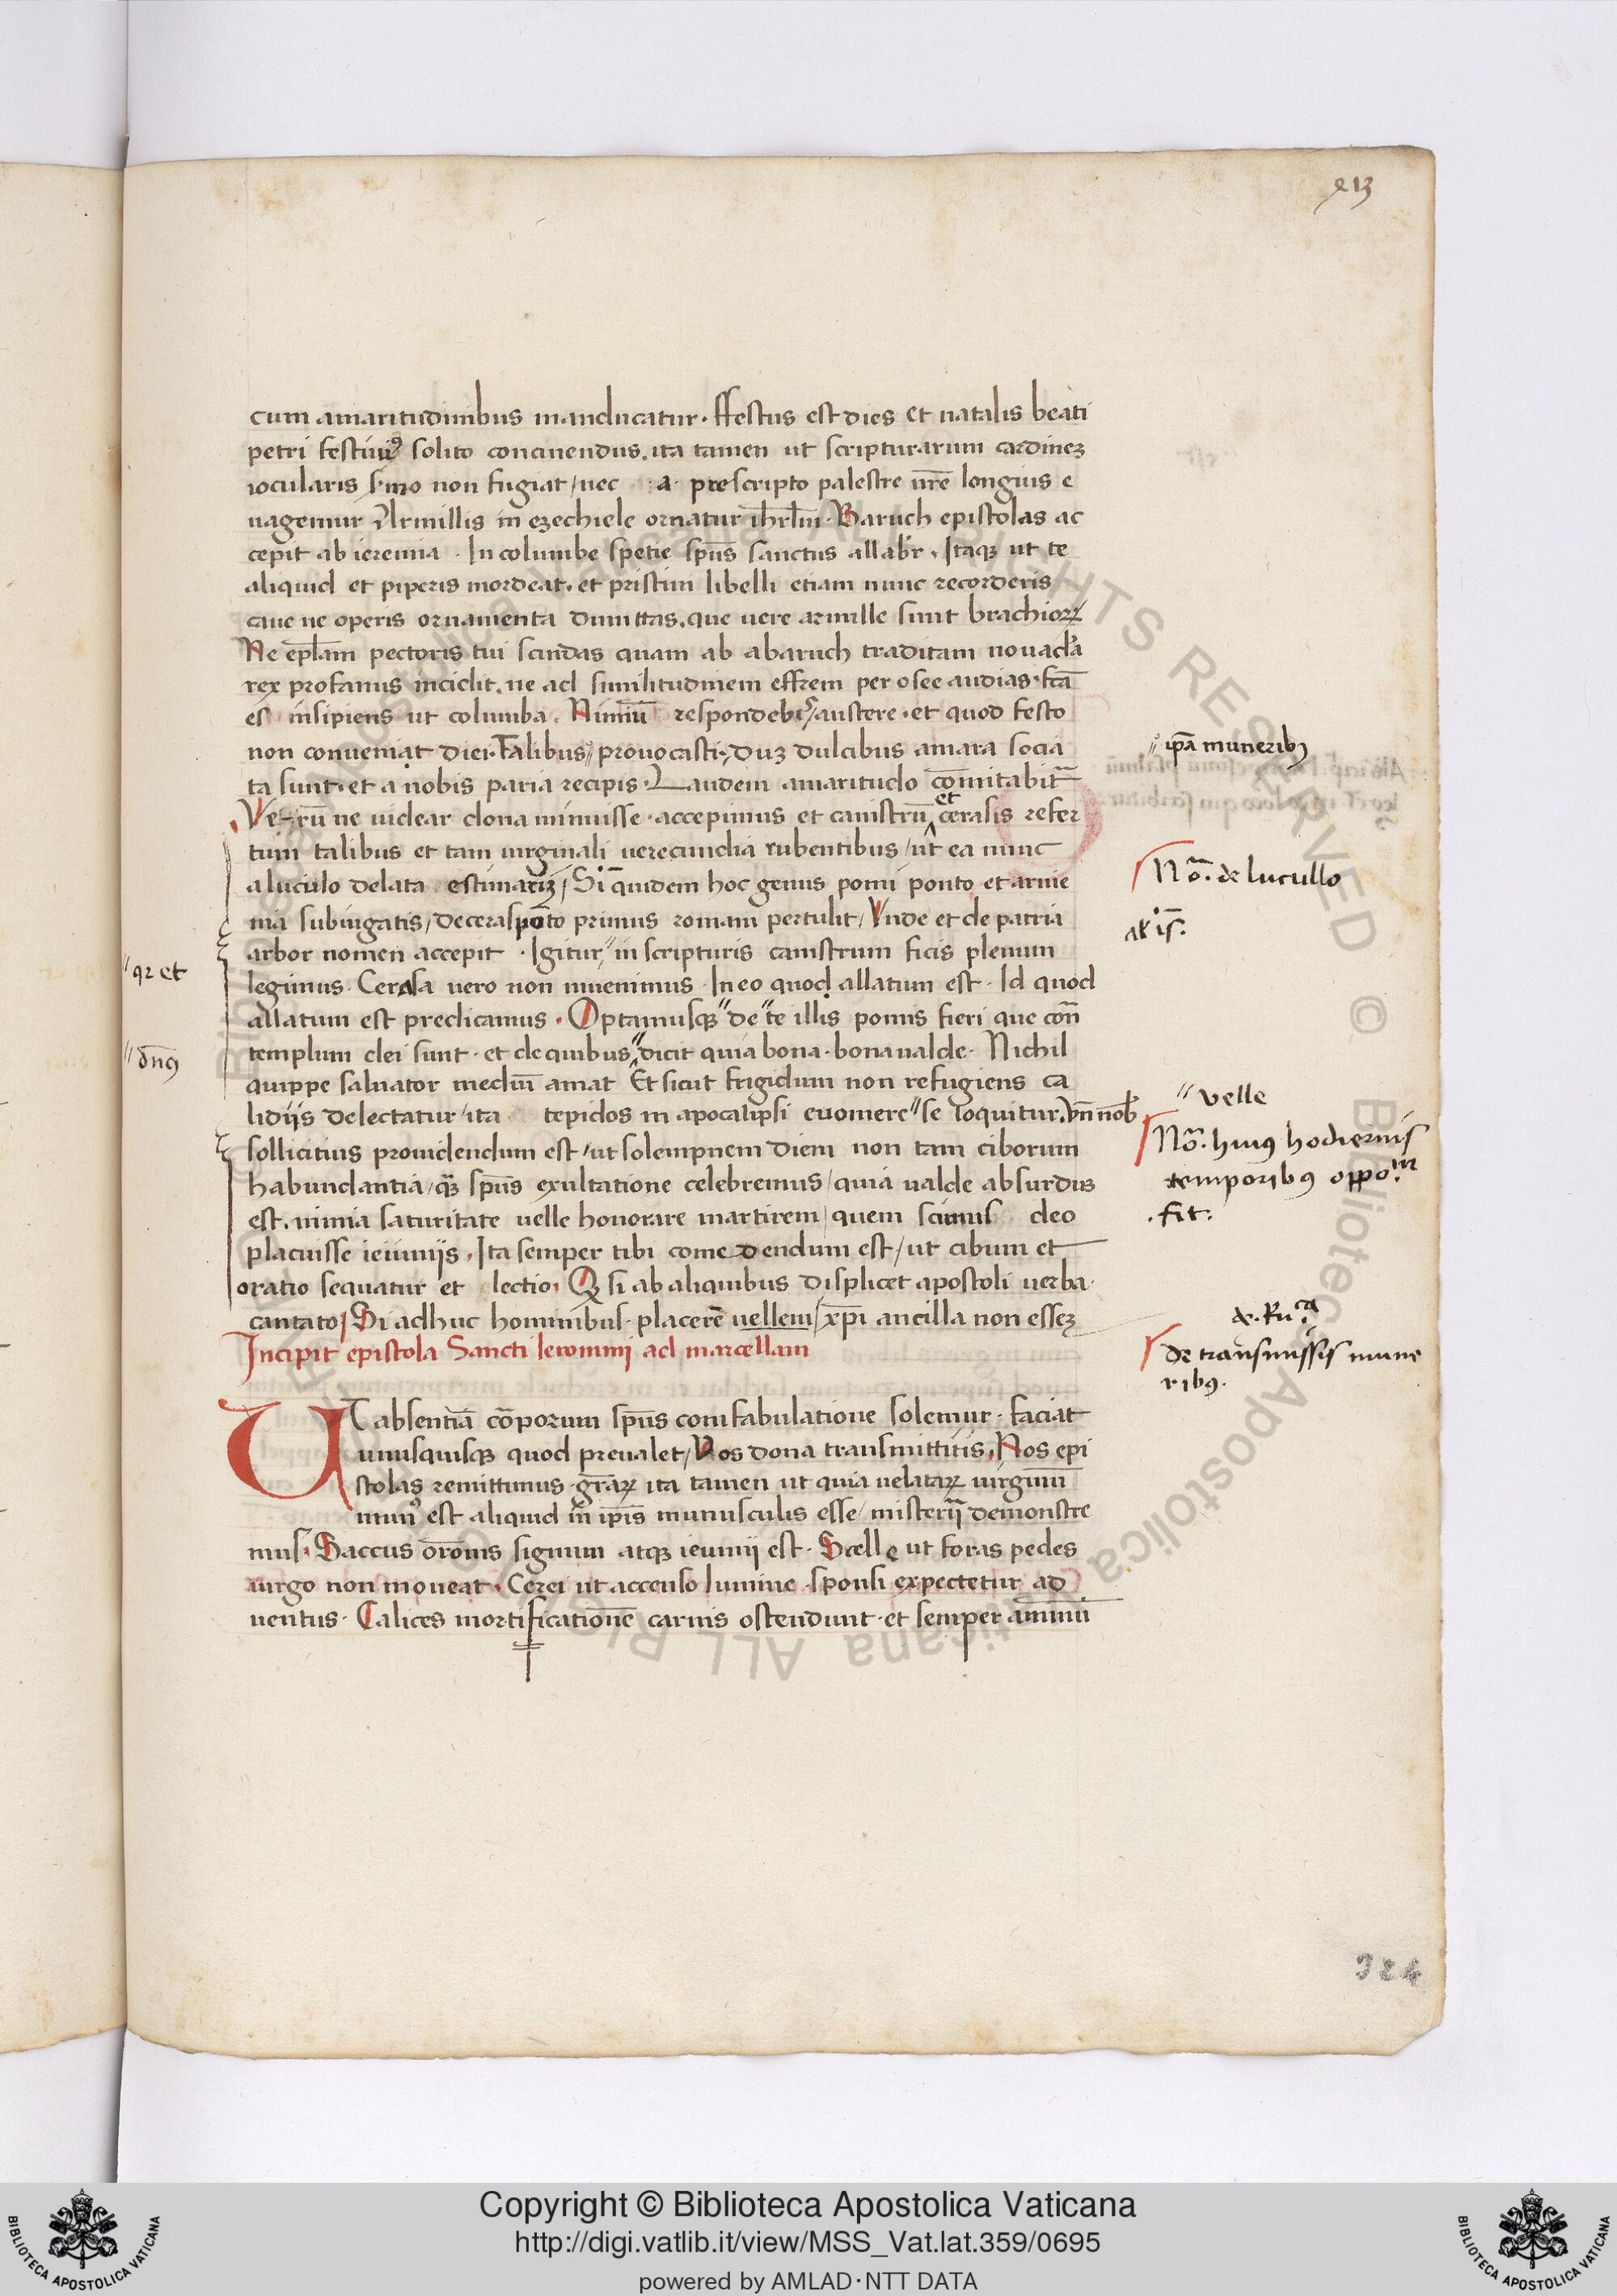 213
cum amaritudinibus manducatur. ffestus est dies et natalis beati
petri festiuiꝰ solito concinendus. ita tamen ut scripturarum cardineꝫ
iocularis ẜmo non fugiat / nec a prescripto palestre nr̄e longius e
uagemur Armillis in ezechiele ornatur ih̅rl̅m. Baruch epistolas ac
cepit ab ieremia. In columbe spetie sp̅us sanctus allabr̄. Itaqꝫ ut te
aliquid et piperis mordeat. et pristini libelli etiam nunc recorderis
caue ne operis ornamenta dimittas. que uere armille sunt brachioꝝ
Ne ep̅l̅am pectoris tui scindas quam ab abaruch traditam nouacl̅a
rex profanus incidit. ne ad similitudinem effrem per osee audias. fc̅a
es insipiens ut columba. Nimiū respondebis / austere. et quod festo
non conueniat diei. Talibus ʺ prouocasti. duꝫ dulcibus amara socia
ta sunt. et a nobis paria recipis. Laudem amaritudo co̅mitabit̅
Verū ne uidear dona minuisse. accepimus et canistrū et cerasis refer
tum talibus et tam uirginali uerecundia rubentibus / ut ea nunc
a luculo delata estimarꝫ / Siquidem hoc genus pomi ponto et arme
nia subiugatis / de ceraspōto primus romam pertulit / Vnde et de patria
arbor nomen accepit. Igitur ʺ in scripturis canistrum ficis plenum
legimus. Cerasa uero non inuenimus. In eo quod allatum est. Id quod
allatum est predicamus. Optamusqꝫ ʺ de ʺ te illis pomis fieri que con̅
templum dei sunt. et de quibus ʺ dicit quia bona. bona ualde. Nichil
quippe saluator mediū amat Et sicut frigidum non refugiens ca
lidijs delectatur / ita tepidos in apocalipsi euomere ʺ se loquitur. Vn̅ nob̅
sollicitius prouidendum est / ut solempnem diem non tam ciborum
habundantia / qꝫ sp̅us exultatione celebremus / quia ualde absurdus
est. nimia saturitate uelle honorare martirem / quem scimus deo
placuisse ieiunijs. Ita semper tibi comedendum est / ut cibum et
oratio sequatur et lectio. Qꝫ si ab aliquibus displicet apostoli uerba.
cantato / Si adhuc hominibus. placere̅ uellem / xp̅i ancilla non esseꝫ
Incipit epistola Sancti Ieronimi ad marcellam
UT absentia̅ co̅porum sp̅us confabulatione solemur. faciat
unusquisqꝫ quod preualet / Vos dona transmittitis. Nos epi
stolas remittimus. gr̅aꝝ ita tamen ut quia uelataꝝ uirginū
munꝰ est aliquid in ip̅is munusculis esse / misterij̅ demonstre
mus. Saccus or̅onis signum atqꝫ ieiunij est. Sellę ut foras pedes
uirgo non moueat. Cerei ut accenso lumine. sponsi expectetur ad
uentus. Calices mortificatione̅ carnis ostendunt. et semper animū
ʺ qꝛ et
ʺ dn̅ꝰ
ʺ ip̅a muneribꝰ
No̅. de lucullo
al' is̅.
ʺ velle
No̅. huiꝰ hodiernis
temporibꝰ oppo.m
fit.
de. Ru.ca
de transmissis mune
ribꝰ.
324
Copyright © Biblioteca Apostolica Vaticana
http://digi.vatlib.it/view/MSS_Vat.lat.359/0695
powered by AMLAD·NTT DATA
BIBLIOTECA APOSTOLICA VATICANA
BIBLIOTECA APOSTOLICA VATICANA